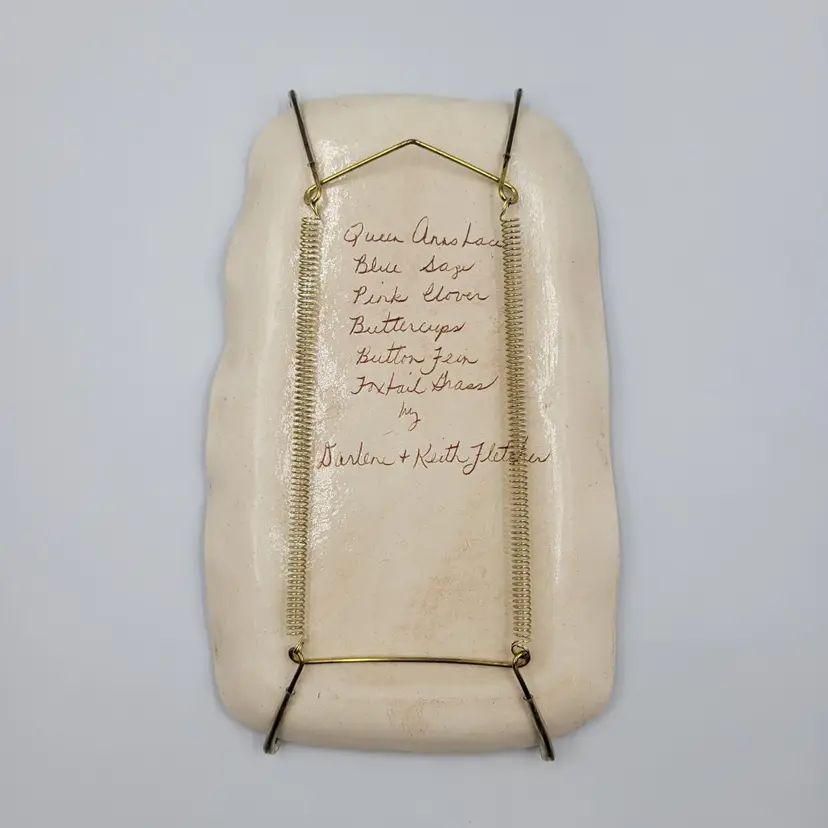 Queen Anns Lace
Blue Sage
Pink Clover
Buttercups
Button Fern
Foxtail Grass
by
Darlene + Keith Fletcher